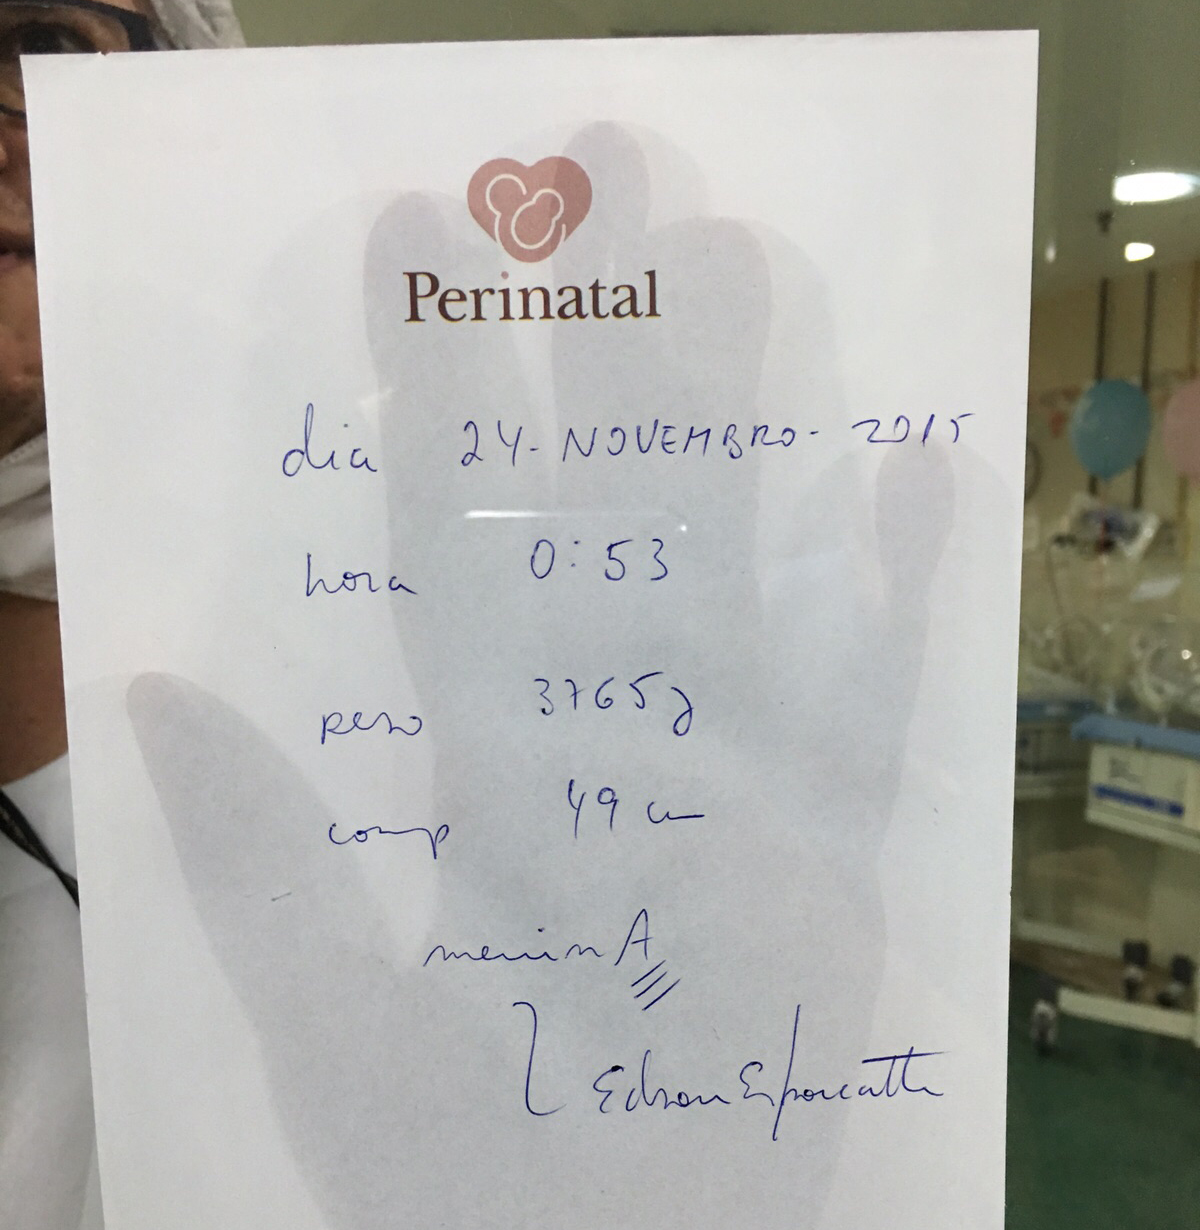 Perinatal
dia 24-NOVEMBRO-2015
hora 0:53
peso 3765g
comp 49 cm
meninA
Edson